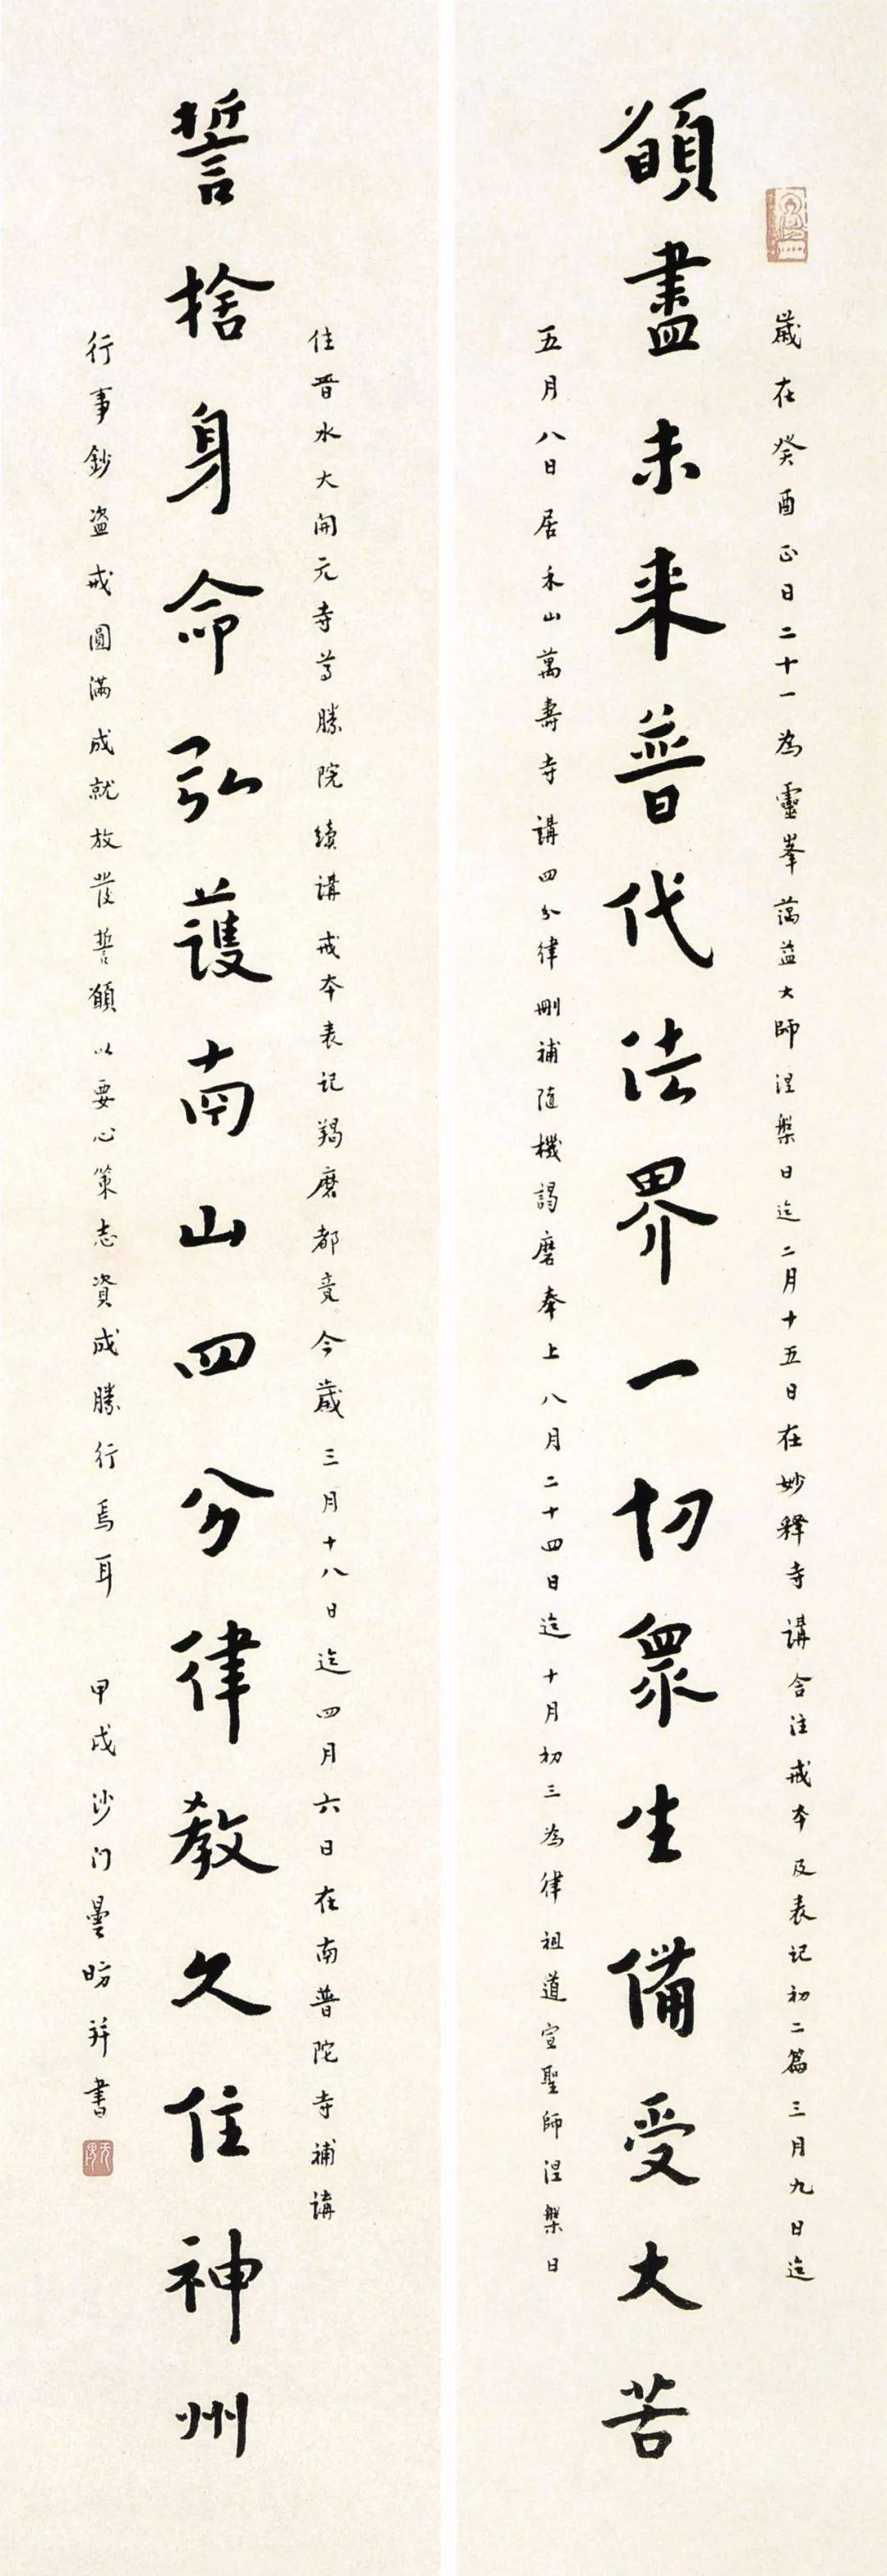 歲在癸酉正日二十一為靈峯蕅益大師涅槃日迄二月十五日在妙釋寺講含注戒本及表記初二篇三月九日迄
願盡未来普代法界一切眾生備受大苦
五月八日居禾山萬壽寺講四分律刪補隨機羯磨奉上八月二十四日迄十月初三為律祖道宣聖師涅槃日
住晉水大開元寺尊勝院續講戒本表記羯磨都竟今歲三月十八日迄四月六日在南普陀寺補講
誓捨身命弘護南山四分律教久住神州
行事鈔盜戒圓滿成就放發誓願以要心策志資成勝行焉耳 甲戌沙门曇昉并書